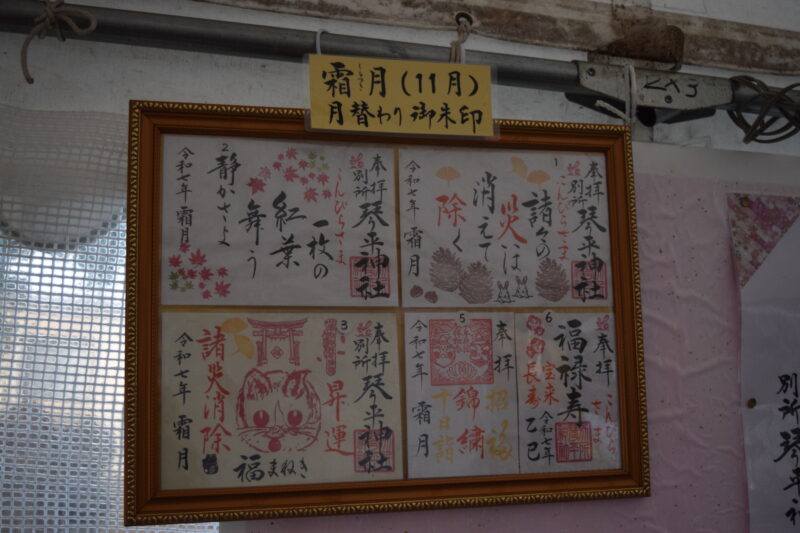 霜月(11月)
しもつき
月替わり御朱印
1
奉拝
別所
琴平神社
こんぴらさま
諸々の
災は
消えて
除く
令和七年 霜月
2
奉拝
別所
琴平神社
こんぴらさま
一枚の
紅葉
舞う
静かさよ
令和七年 霜月
3
奉拝
別所
琴平神社
昇運
福まねき
諸災消除
令和七年 霜月
5
奉拝
招福
錦繍
令和七年 霜月
6
奉拝
こんぴら
さま
福禄寿
宝来
長寿
令和七年
乙巳
別所 琴平神社